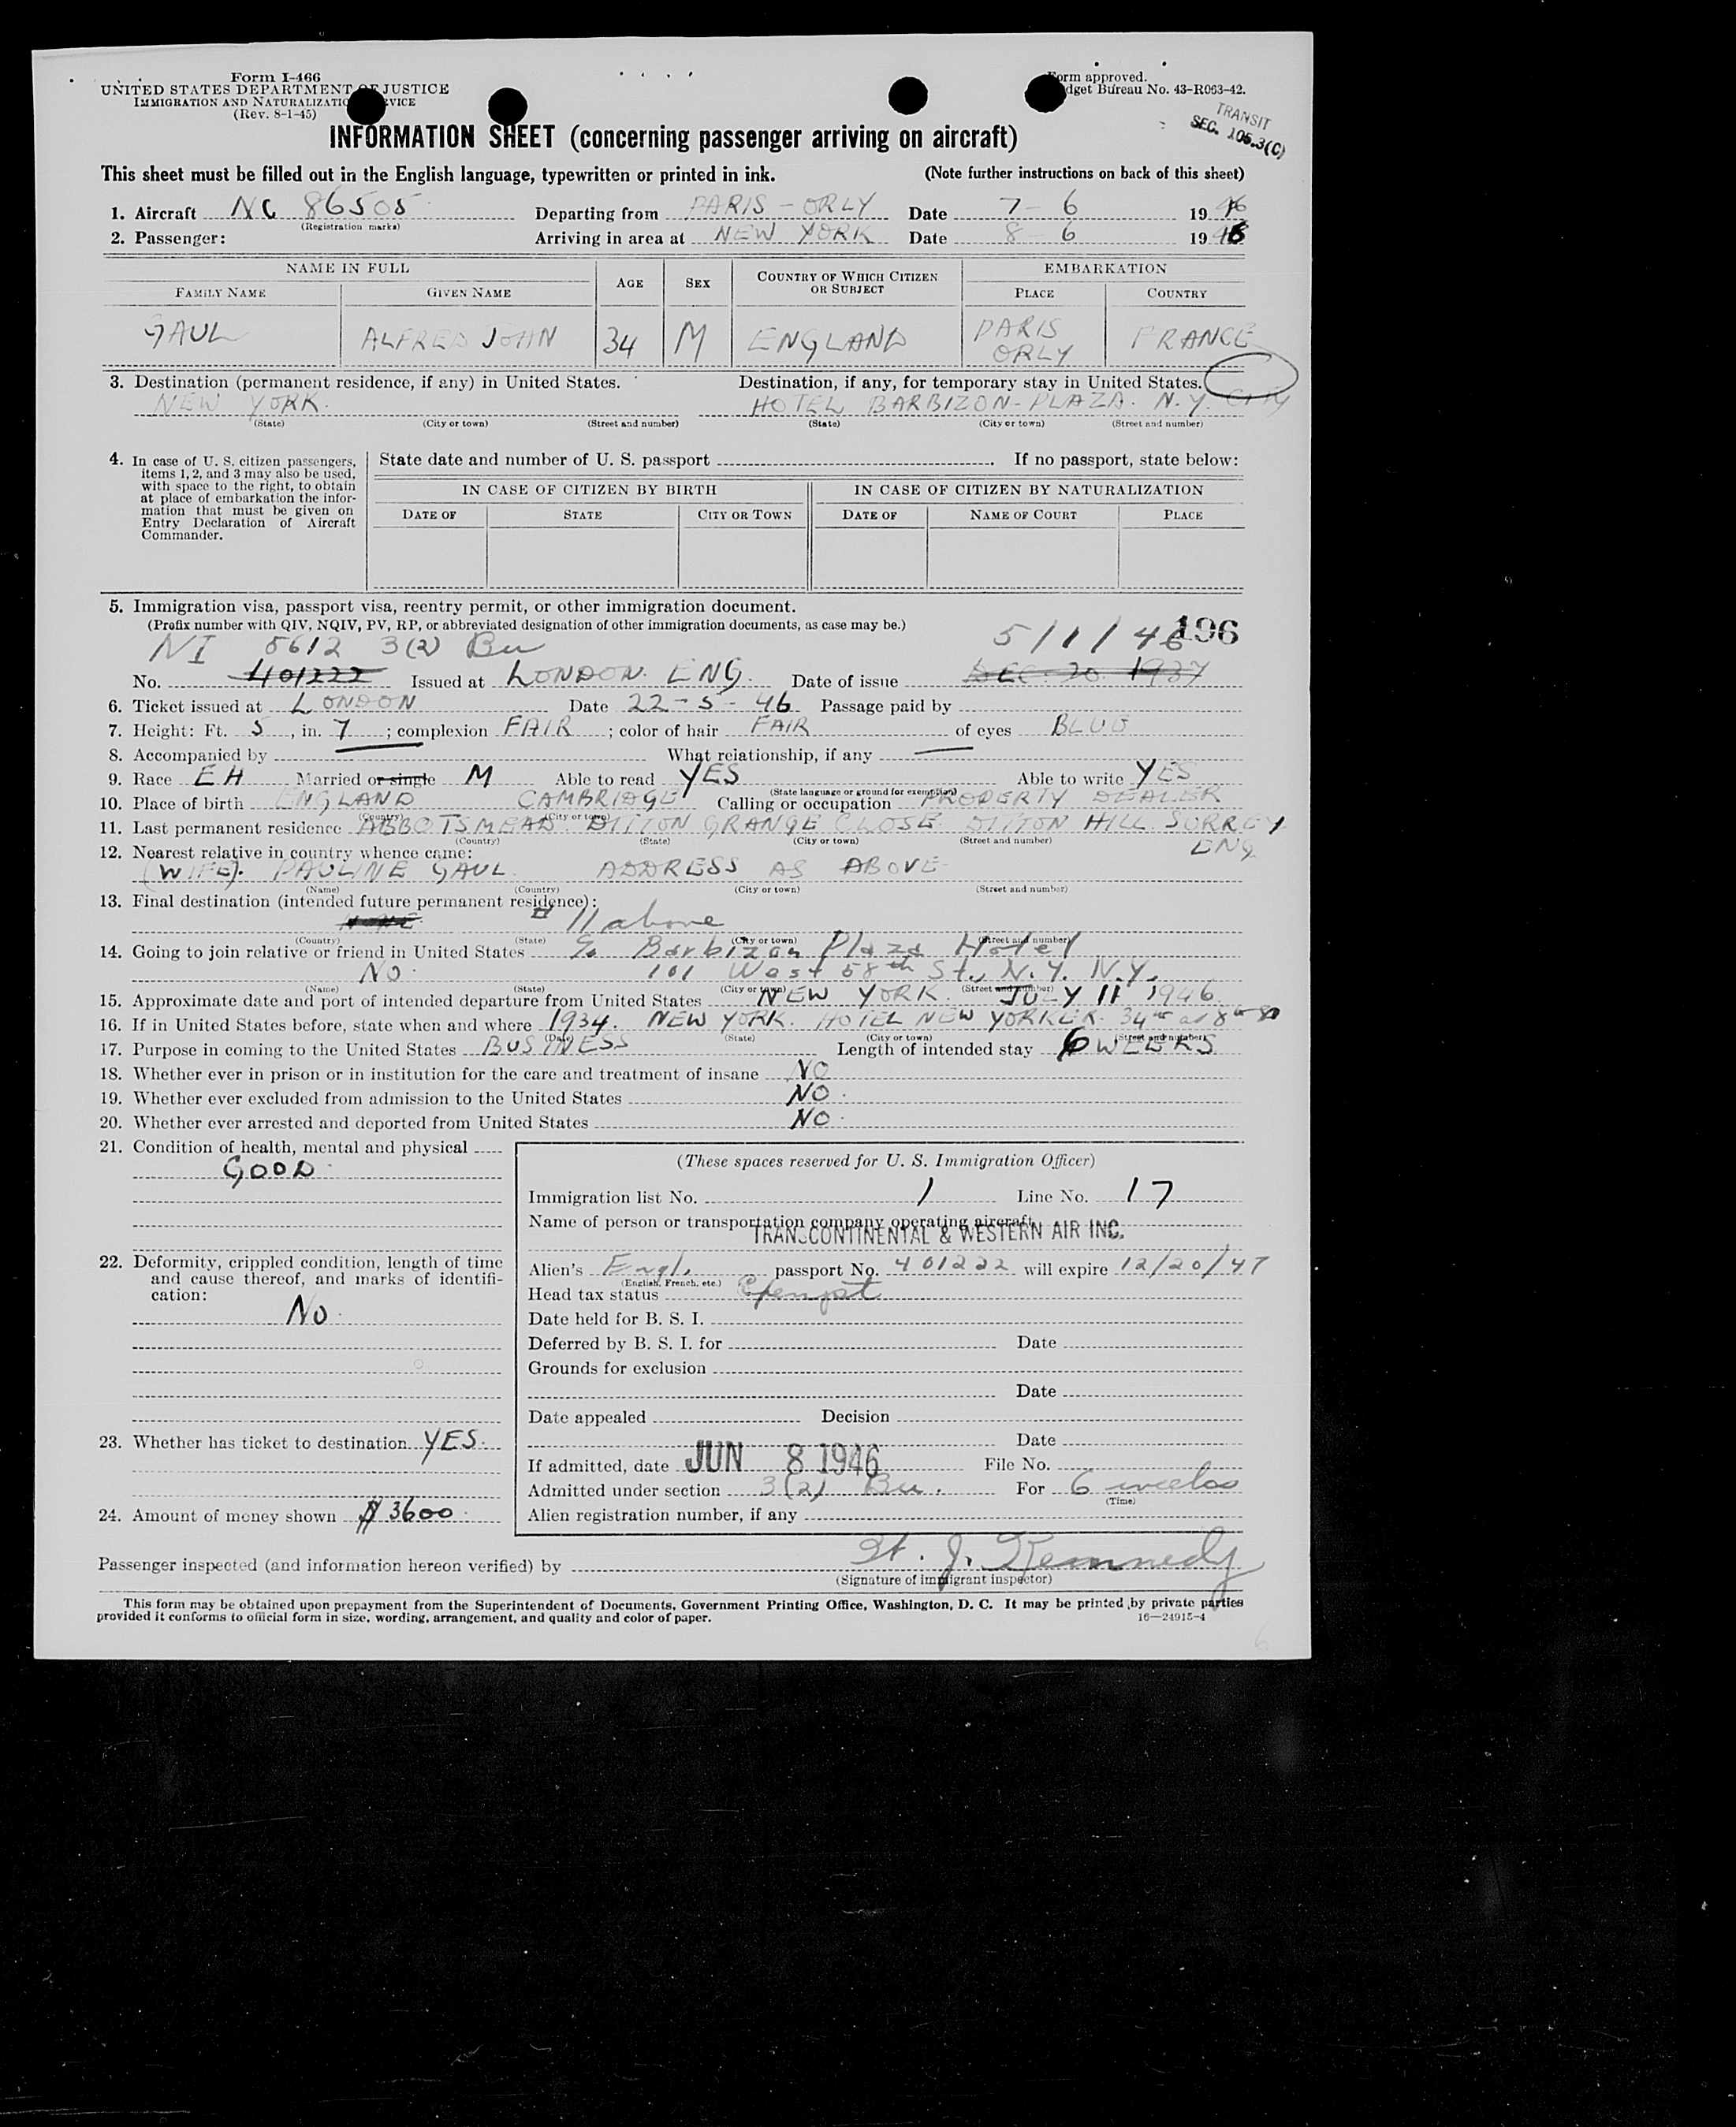 Form I-466
UNITED STATES DEPARTMENT OF JUSTICE
IMMIGRATION AND NATURALIZATION SERVICE
(Rev. 8-1-45)
Form approved.
Budget Bureau No. 43-R063-42.
TRANSIT
SEC. 105.3(C)
INFORMATION SHEET (concerning passenger arriving on aircraft)
This sheet must be filled out in the English language, typewritten or printed in ink. (Note further instructions on back of this sheet)
1. Aircraft NC 86505 Departing from PARIS - ORLY Date 7-6 1946
(Registration marks)
2. Passenger: Arriving in area at NEW YORK Date 8-6 1946
NAME IN FULL AGE SEX COUNTRY OF WHICH CITIZEN OR SUBJECT EMBARKATION
FAMILY NAME GIVEN NAME PLACE COUNTRY
GAUL ALFRED JOHN 34 M ENGLAND PARIS ORLY FRANCE
3. Destination (permanent residence, if any) in United States. Destination, if any, for temporary stay in United States.
NEW YORK. HOTEL BARBIZON-PLAZA. N.Y. CITY
(State) (City or town) (Street and number) (State) (City or town) (Street and number)
4. In case of U. S. citizen passengers, items 1, 2, and 3 may also be used, with space to the right, to obtain at place of embarkation the information that must be given on Entry Declaration of Aircraft Commander.
State date and number of U. S. passport . If no passport, state below:
IN CASE OF CITIZEN BY BIRTH IN CASE OF CITIZEN BY NATURALIZATION
DATE OF STATE CITY OR TOWN DATE OF NAME OF COURT PLACE
5. Immigration visa, passport visa, reentry permit, or other immigration document.
(Prefix number with QIV, NQIV, PV, RP, or abbreviated designation of other immigration documents, as case may be.)
196
NI 5612 3(2) Bu 5/1/46
No. 401222 Issued at LONDON. ENG. Date of issue DEC. 20 1937
6. Ticket issued at LONDON Date 22-5-46 Passage paid by
7. Height: Ft. 5, in. 7; complexion FAIR; color of hair FAIR of eyes BLUE
8. Accompanied by What relationship, if any
9. Race EH Married or single M Able to read YES Able to write YES
(State language or ground for exemption)
10. Place of birth ENGLAND CAMBRIDGE Calling or occupation PROPERTY DEALER
(Country) (City or town)
11. Last permanent residence ABBOTSMEAD. DITTON GRANGE CLOSE DITTON HILL. SURREY ENG
(Country) (State) (City or town) (Street and number)
12. Nearest relative in country whence came:
(WIFE). PAULINE GAUL. ADDRESS AS ABOVE
(Name) (Country) (City or town) (Street and number)
13. Final destination (intended future permanent residence):
# 11 above
(Country) (State) (City or town) (Street and number)
14. Going to join relative or friend in United States c/o Barbizon Plaza Hotel
No. 101 West 58th St., N.Y. N.Y.
(Name) (State) (City or town) (Street and number)
15. Approximate date and port of intended departure from United States NEW YORK. JULY 11 1946
16. If in United States before, state when and where 1934. NEW YORK. HOTEL NEW YORKER. 34th
(Date) (State) (City or town) (Street and number)
17. Purpose in coming to the United States BUSINESS Length of intended stay 6 WEEKS
18. Whether ever in prison or in institution for the care and treatment of insane NO
19. Whether ever excluded from admission to the United States NO.
20. Whether ever arrested and deported from United States NO.
21. Condition of health, mental and physical
GOOD.
22. Deformity, crippled condition, length of time and cause thereof, and marks of identification:
No.
23. Whether has ticket to destination YES.
24. Amount of money shown $3600.
(These spaces reserved for U. S. Immigration Officer)
Immigration list No. 1 Line No. 17
Name of person or transportation company operating aircraft
TRANSCONTINENTAL & WESTERN AIR INC.
Alien's Engl. passport No. 401222 will expire 12/20/47
(English, French, etc.)
Head tax status Exempt
Date held for B. S. I.
Deferred by B. S. I. for Date
Grounds for exclusion
Date
Date appealed Decision
Date
If admitted, date JUN 8 1946 File No.
Admitted under section 3(2) Bu. For 6 weeks
(Time)
Alien registration number, if any
Passenger inspected (and information hereon verified) by J. Kennedy
(Signature of immigrant inspector)
This form may be obtained upon prepayment from the Superintendent of Documents, Government Printing Office, Washington, D. C. It may be printed by private parties
provided it conforms to official form in size, wording, arrangement, and quality and color of paper.
16—24915-4
6